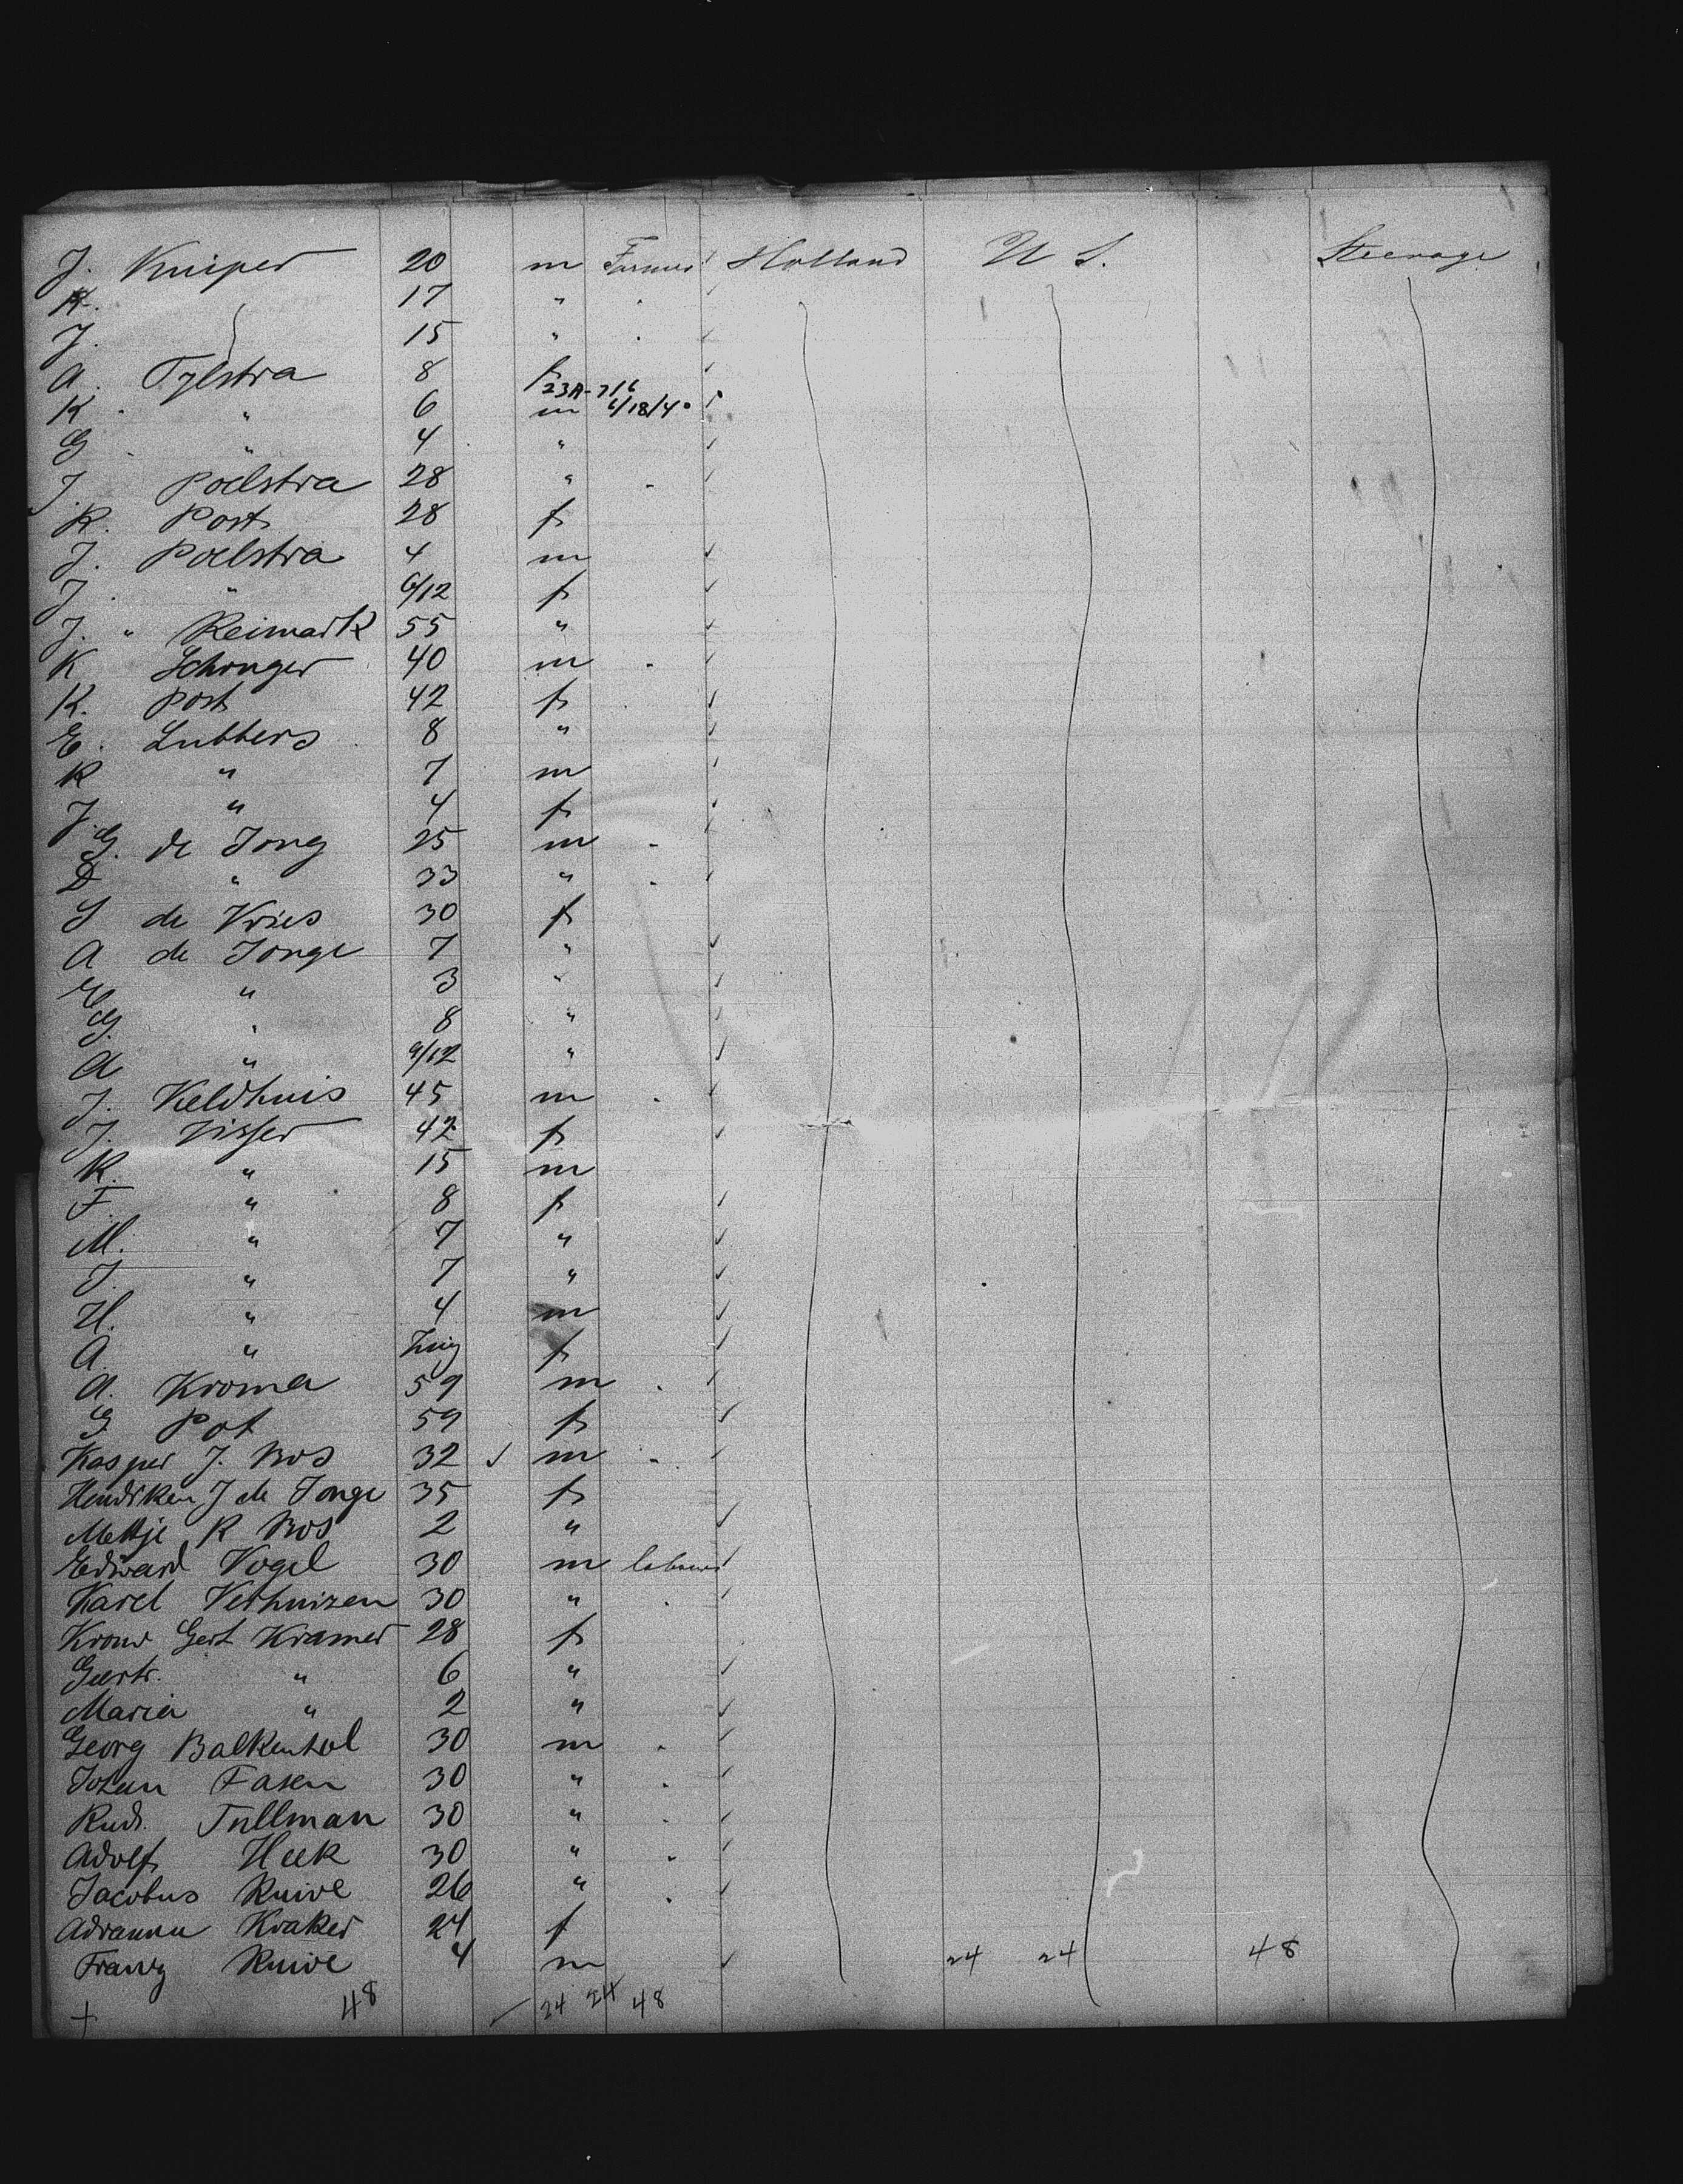 J. Kuiper 20 m Farmer Holland U S. Steerage
K. 17 "
J. 15 "
A. Tylstra 8 f
23A-716
K " 6 m 6/18/40
G " 4 "
J. Poelstra 28 "
R. Post 28 f
J. Poelstra 4 m
J. " 6/12 f
J. " Reimark 55 "
K 40 m
K. Post 42 f
E. Lubbers 8 "
K " 7 m
J. " 4 f
G. de Jong 25 m
D " 33 "
S de Vries 30 f
A de Jonge 7 "
" 3 "
G. " 8 "
A " 9/12 "
J. Veldhuis 45 m
J. Visser 42 f
K. " 15 m
F. " 8 f
M. " 7 "
J. " 7 "
H. " 4 m
A. " f
A. Kroma 59 m
G Pot 59 f
Kasper J. Bos 32 m
Hendriken J de Jonge 35 f
Mettje K Bos 2 "
Edward Vogel 30 m labourer
Karel Verhuizen 30 "
Gert Kramer 28 f
Geertr. " 6 "
Maria " 2 "
Georg Balkenhol 30 m
Johan Fasen 30 "
Rud. Tullman 30 "
Adolf Heek 30 "
Jacobus Kuive 26 "
Adrianna Kraker 24 f
Franz Kuive 4 m 24 24 48
+ 48 24 24 48